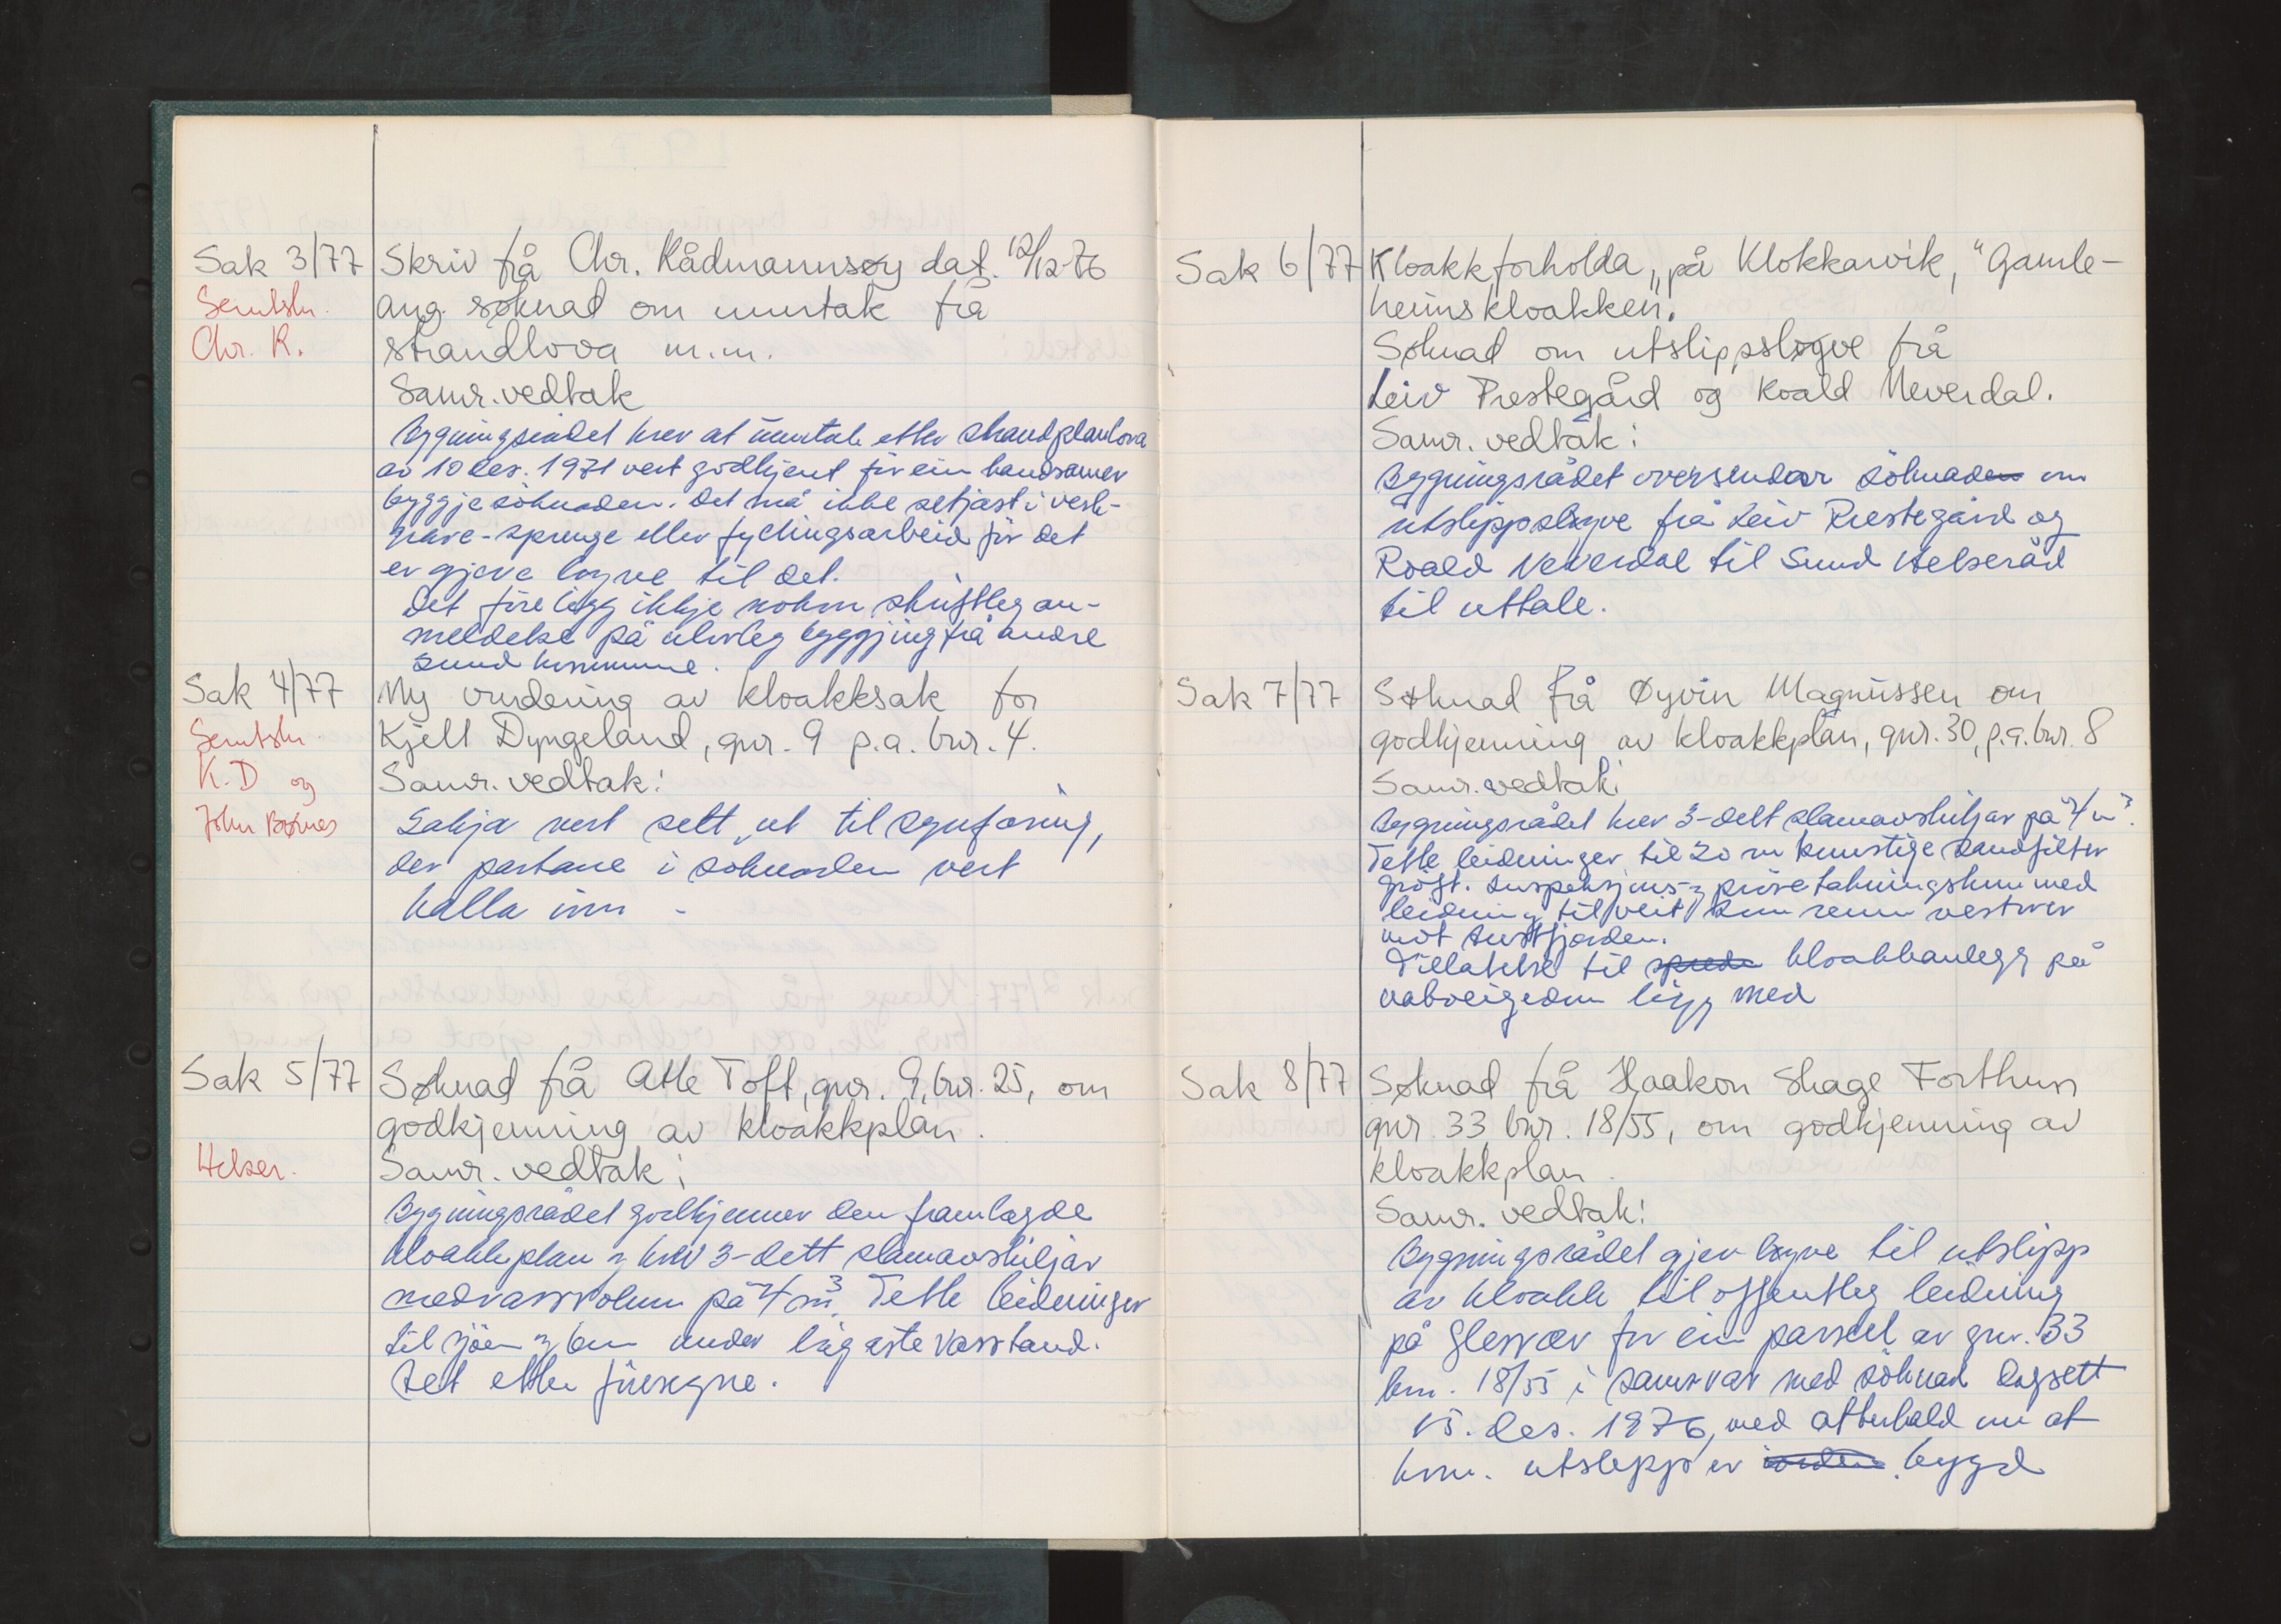 Sak 3/77
Serutskr.
Chr. R.
Skriv frå Chr. Rådmannsøy dat. 12/12-76
ang. søknad om unntak frå
strandlova m.m.
Samr. vedtak
Bygningsrådet krev at unntak etter strandplanlova
av 10 des. 1971 vert godkjent før ein handsamer
byggjesöknaden. Det må ikke setjast i verk-
grave-sprenge eller fyllingsarbeid för det
er gjeve löyve til det.
Det föreligg ikkje nokon skriftleg an-
meldelse på ulovleg byggjing frå andre
Sund kommune.
Sak 4/77
Serutskr.
K.D og
John Børnes
Ny vurdering av kloakksak for
Kjell Dyngeland, gnr. 9 p.a. bnr. 4.
Samr. vedtak:
Sakja vert sett ut til synfaring,
der partane i söknaden vert
kalla inn -
Sak 5/77
Helser.
Søknad frå Atle Toft, gnr. 9, bnr. 25, om
godkjenning av kloakkplan.
Samr. vedtak:
Bygningsrådet godkjenner den framlagde
kloakkplan og krev 3-delt slamavskiljar
med vassvolum på 4 m³. Tette leidninger
til sjöen og 6m under lågaste vasstand.
Det etter föresegne.
Sak 6/77
Kloakkforholda „på Klokkarvik," Gamle-
heimskloakken.
Søknad om utslippsløyve frå
Leiv Prestegård og Roald Neverdal.
Samr. vedtak:
Bygningsrådet oversendar söknaden om
utslippsløyve frå Leiv Prestegård og
Roald Neverdal til Sund Helseråd
til uttale.
Sak 7/77
Søknad frå Øyvin Magnussen om
godkjenning av kloakkplan, gnr. 30, p.a. bnr. 8
Samr. vedtak:
Bygningsrådet krev 3-delt slamavskiljar på 4 m³.
Tette leidninger til 20 m kunstige sandfilter
gröft. Inspeksjons- og prövetakningskum med
leidning til veit som renn vestover
mot Austfjorden.
Tillatelse til kloakkanlegg på
naboeigedom ligg med
Sak 8/77
Søknad frå Haakon Skage Forthun
gnr. 33 bnr. 18/55, om godkjenning av
kloakkplan.
Samr. vedtak:
Bygningsrådet gjev løyve til utslipp
av kloakk til offentleg leidning
på Glesvær for ein parsell av gnr. 33
bnr. 18/55 i samsvar med söknad dagsett
15. des. 1976, med atterhald om at
kom. utslepp er bygd